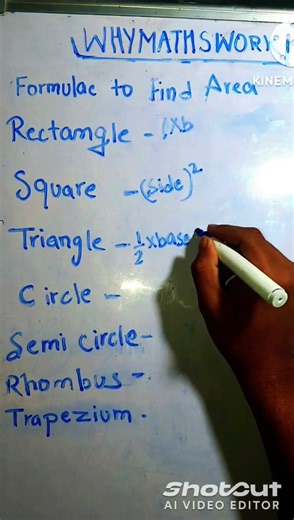 WHYMATHSWORY
KINEM
Formulae to Find Area
Rectangle - l×b
Square - (Side)²
Triangle - 1/2 × base
Circle -
Semi circle -
Rhombus -
Trapezium -
ShotCut
AI VIDEO EDITOR